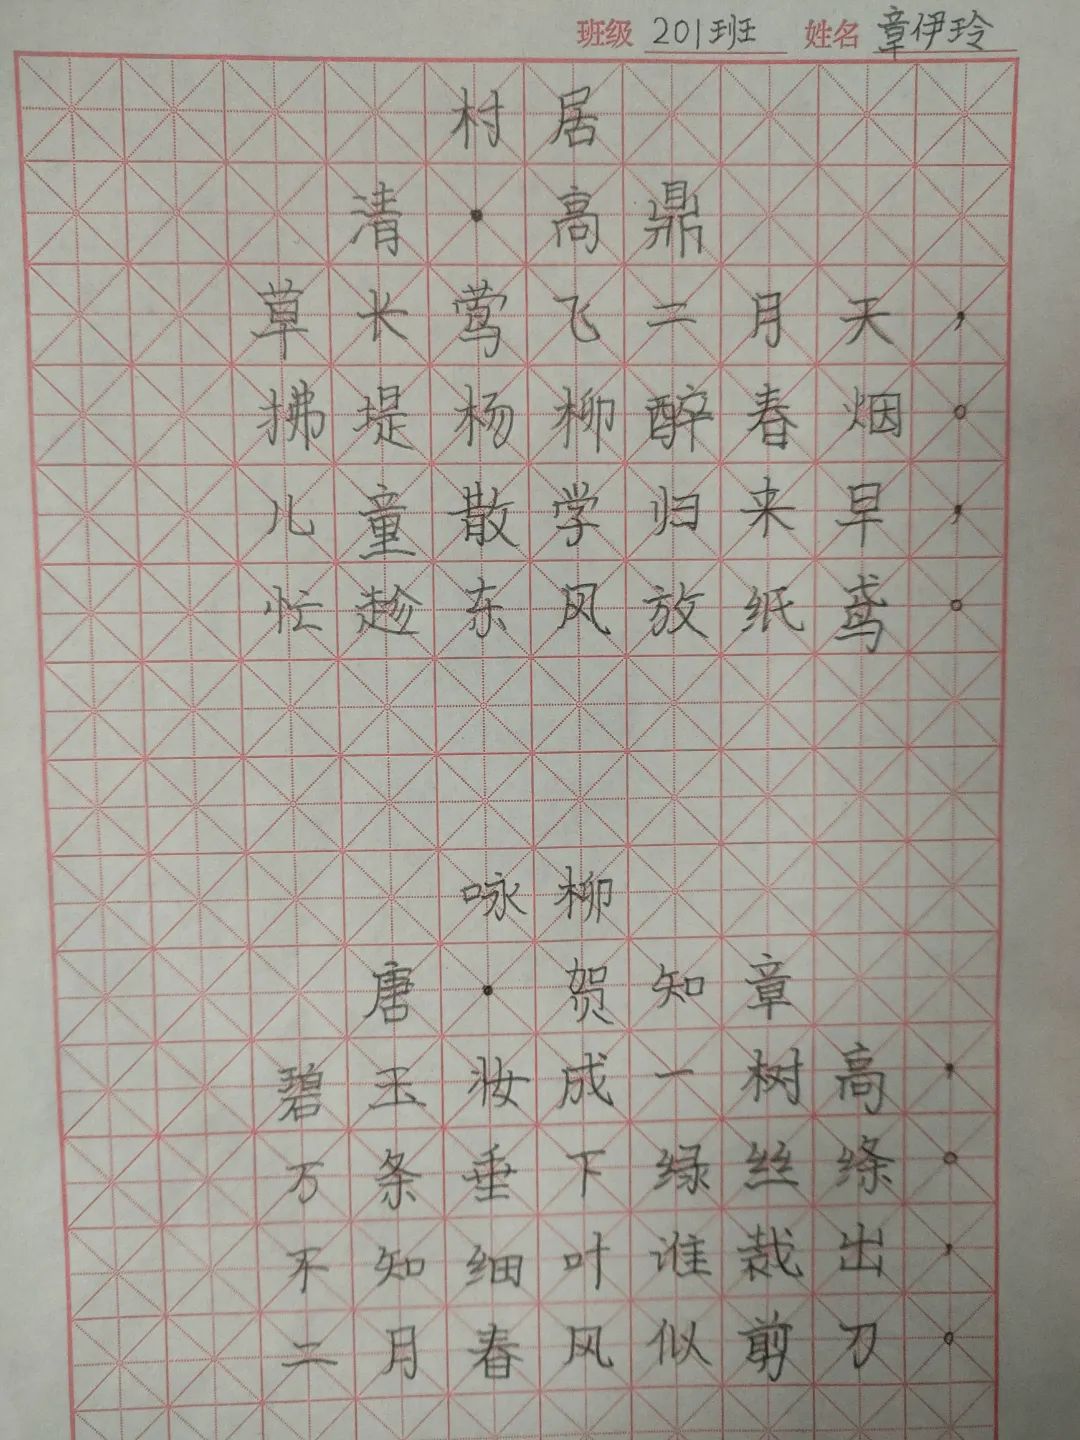 班级 201班 姓名 章伊玲
村居
清·高鼎
草长莺飞二月天，
拂堤杨柳醉春烟。
儿童散学归来早，
忙趁东风放纸鸢。
咏柳
唐·贺知章
碧玉妆成一树高，
万条垂下绿丝绦。
不知细叶谁裁出，
二月春风似剪刀。